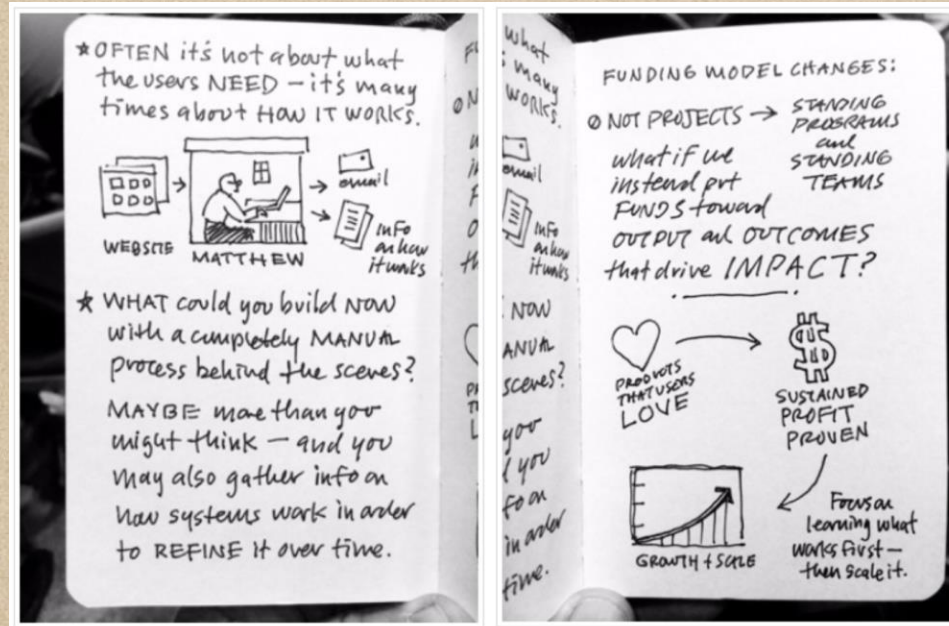 ★ OFTEN it's not about what
the users NEED – it's many
times about HOW IT WORKS.
WEBSITE
MATTHEW
email
info
on how
it works
★ WHAT could you build NOW
with a completely MANUAL
process behind the scenes?
MAYBE more than you
might think – and you
may also gather info on
how systems work in order
to REFINE it over time.
what
many
WORKS.
email
info
on how
it works
NOW
ANUAL
scenes?
you
you
fo on
in order
time.
FUNDING MODEL CHANGES:
NOT PROJECTS → STANDING
PROGRAMS
and
STANDING
TEAMS
what if we
instead put
FUNDS toward
OUTPUT and OUTCOMES
that drive IMPACT?
PRODUCTS
THAT USERS
LOVE
SUSTAINED
PROFIT
PROVEN
GROWTH + SCALE
Focus on
learning what
works first –
then scale it.